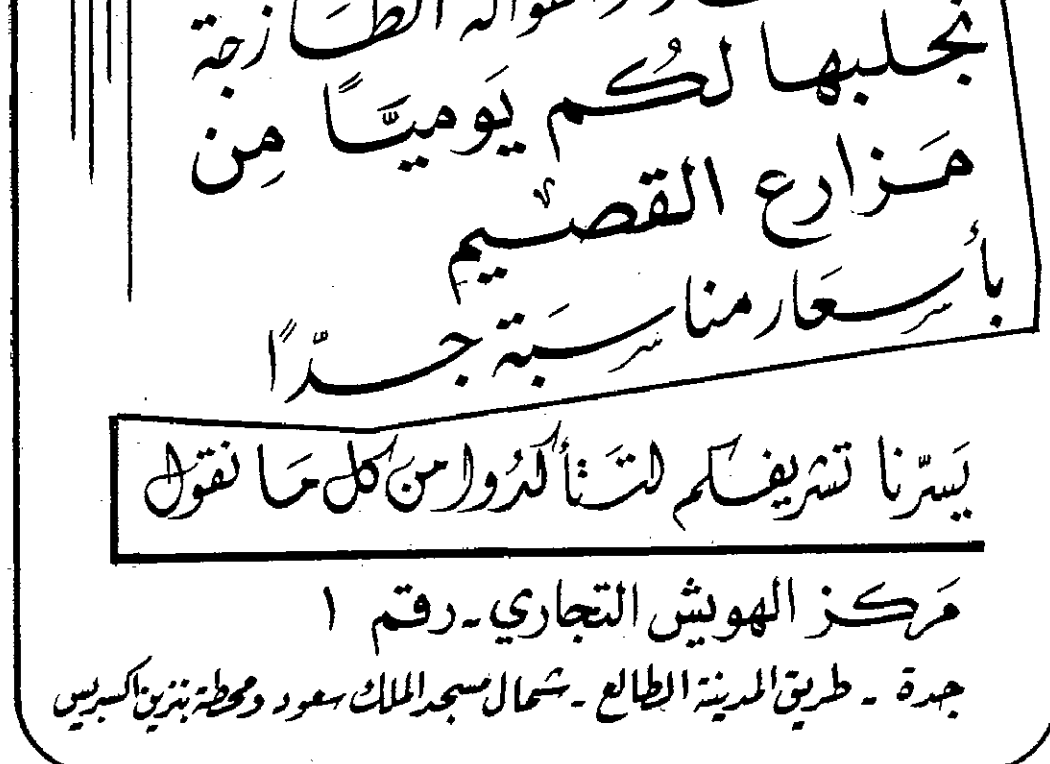 والفواكه الطازجة
نجلبها لكم يوميًا من
مزارع القصيم
بأسعار مناسبة جدًا
يسرّنا تشريفكم لتتأكدوا من كل ما نقول
مركز الهويش التجاري - رقم ١
جدة - طريق المدينة الطالع - شمال مسجد الملك سعود ومحطة بنزين اكسبريس